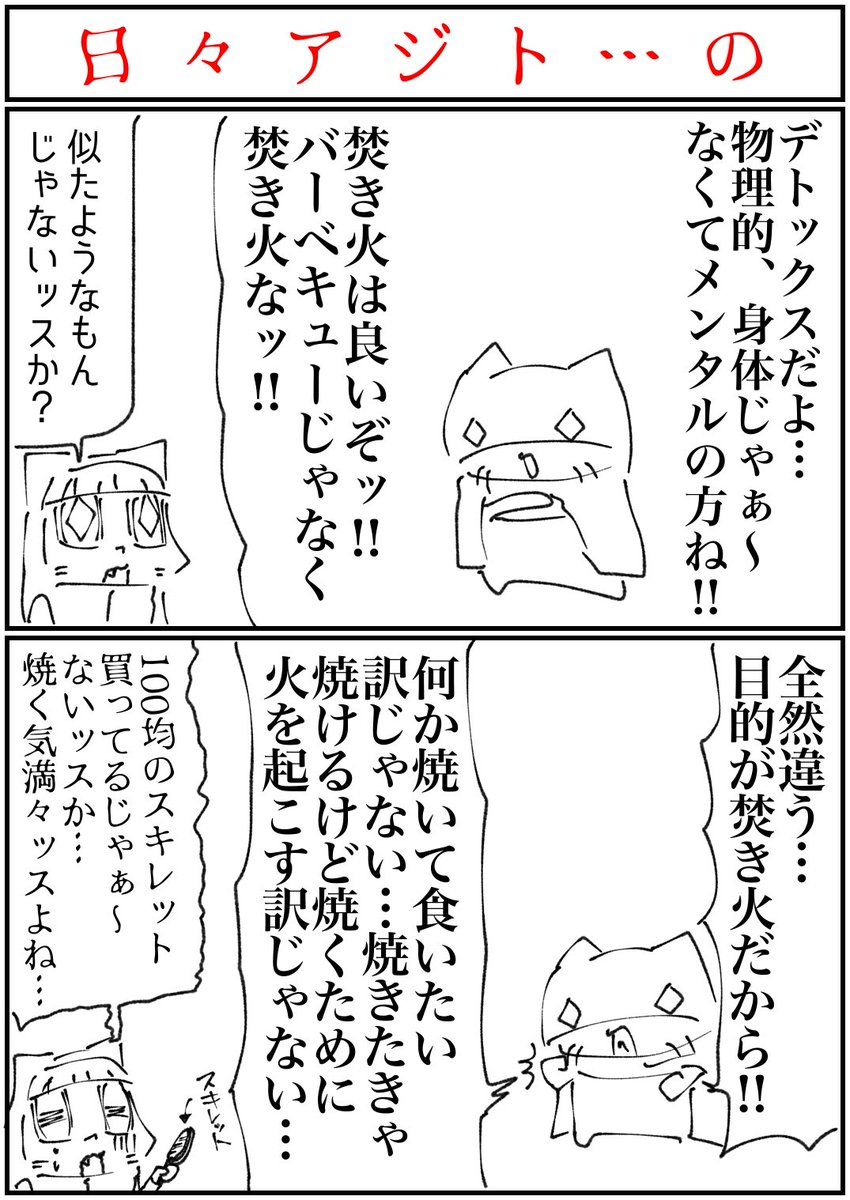 日々アジト…の
デトックスだよ…
物理的、身体じゃぁ～
なくてメンタルの方ね!!
焚き火は良いぞッ!!
バーベキューじゃなく
焚き火なッ!!
似たようなもん
じゃないッスか？
全然違う…
目的が焚き火だから!!
何か焼いて食いたい
訳じゃない…焼きたきゃ
焼けるけど焼くために
火を起こす訳じゃない…
100均のスキレット
買ってるじゃぁ～
ないッスか…
焼く気満々ッスよね…
スキレット